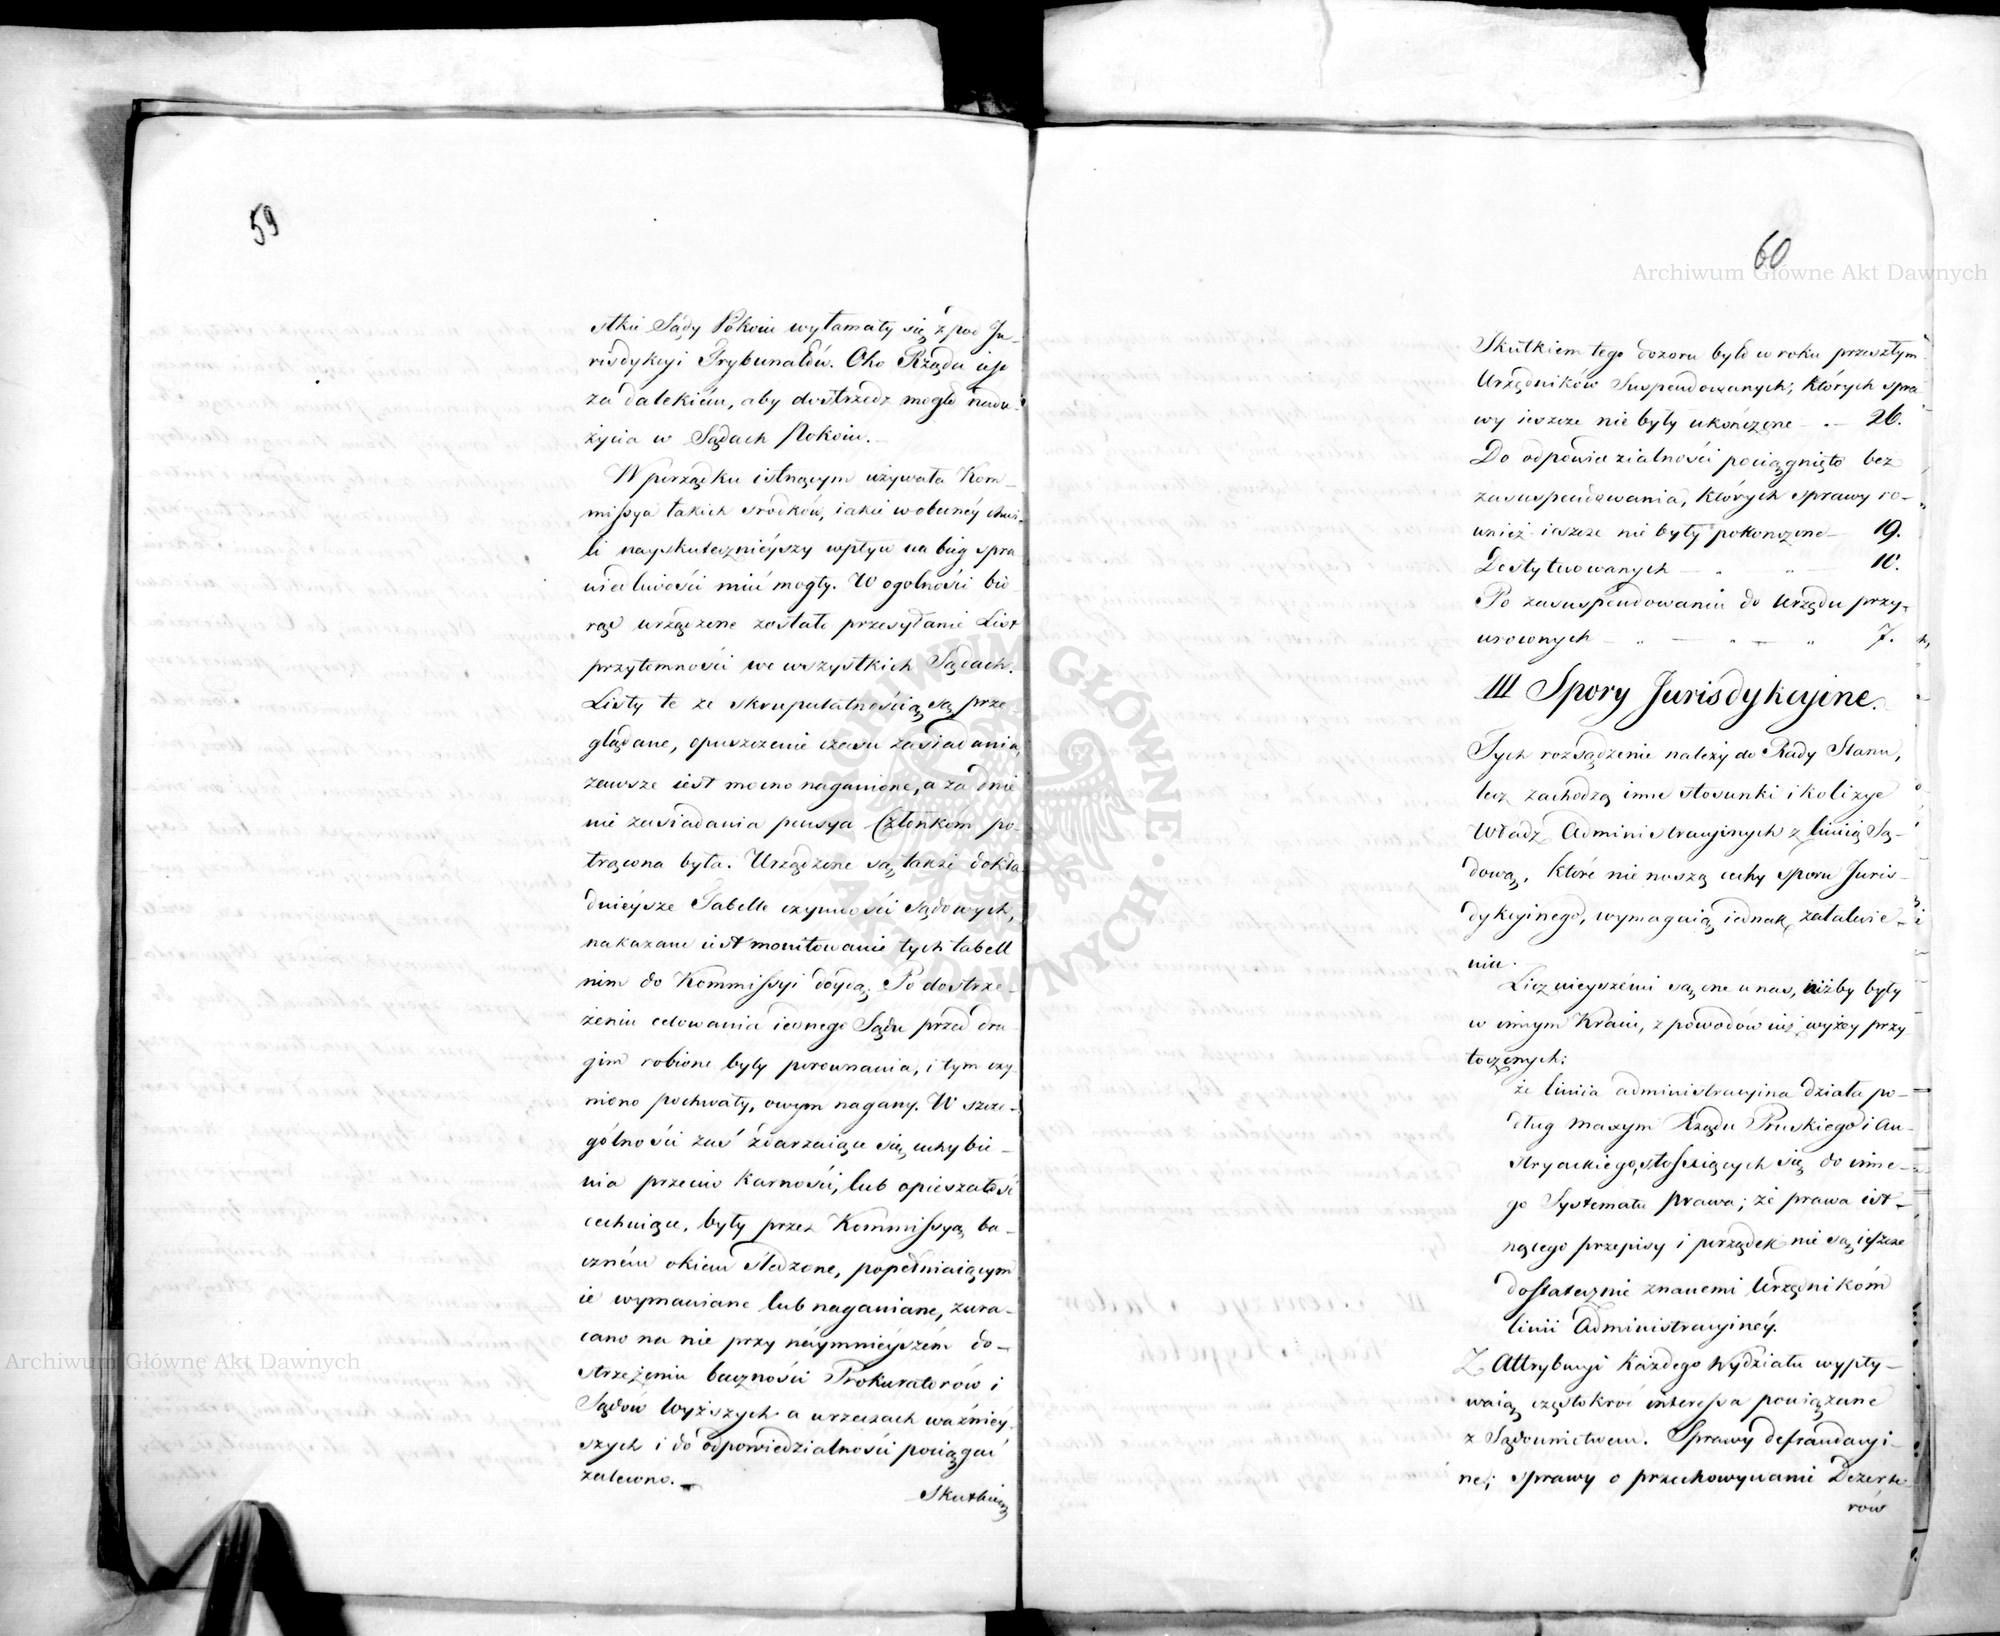 59
stkie Sądy Pokoiu wyłamały się z pod Ju-
risdykcyi Trybunałów. Oko Rządu iest
za dalekiém, aby dostrzedz mogło nadu-
życia w Sądach Pokoiu.
W porządku istnącym używała Kom-
missya takich srodków, iakie w obecnéy chwi-
li nayskutecznieyszy wpływ na bieg spra
wiedliwości mieć mogły. W ogolności bio
rąc urządzone zostało przesyłanie List
przytomności we wszystkich Sądach.
Listy te ze skrupulatnością są prze-
glądane, opuszczenie czasu zasiadania,
zawsze iest mocno naganione, a za dnie
nie zasiadania pensya Członkom po-
trącona była. Urządzone są także dokła-
dnieysze Tabelle czynności sądowych,
nakazane iest monitowanie tych tabell
nim do Kommissyi doydą. Po dostrze-
żeniu celowania iednego Sądu przed dru
gim robione były porownania, i tym czy
niono pochwały, owym nagany. W szcze-
gólności zaś zdarzaiące się uchybie-
nia przeciw karności, lub opieszałość
cechuiące, były przez Kommissyą ba-
czném okiem śledzone, popełniaiącym
ie wymawiane lub naganiane, zwra-
cano na nie przy náymnieyszém do-
strzeżeniu baczności Prokuratorów i
Sądów Wyższych a w rzeczach ważniéy
szych i do odpowiedzialności pociągać
zalecono.
Skutkiem
60
Skutkiem tego dozoru było w roku przeszłym
Urzędników Suspendowanych; których spra
wy ieszcze nie były ukończone - . - 26.
Do odpowiedzialności pociągnięto bez
zasuspendowania, których sprawy ro-
wnież ieszcze nie były pokonczone - 19.
Destytuowanych - " " - 10.
Po zasuspendowaniu do Urzędu przy-
wroconych - " - " - " 7.
III Spory Jurisdykcyine.
Tych rozsądzenie należy do Rady Stanu,
lecz zachodzą inne stosunki i kolizye
Władz Administracyinych z liniią Są-
dową, które nie noszą cechy sporu Juris-
dykcyinego, wymagaią iednak załatwie-
nia.
Licznieyszémi są one u nas, niżby były
w innym Kraiu, z powodów iuż wyżey przy
toczonych:
że liniia administracyina działa po-
dług maxym Rządu Pruskiego i Au-
stryackiego, stosuiących się do inne-
go Systematu prawa; że prawa ist-
nącego przepisy i porządek nie są ieszcze
dostatecznie znanemi Urzędnikóm
linii Administracyinéy.
Z Attrybucyi każdego Wydziału wypły-
waią częstokroć interessa powiązane
z Sądownictwem. Sprawy defraudacyi-
ne; sprawy o przechowywanie Dezerte-
rów
Archiwum Główne Akt Dawnych
Archiwum Główne Akt Dawnych
ARCHIWUM GŁÓWNE · AKT DAWNYCH ·